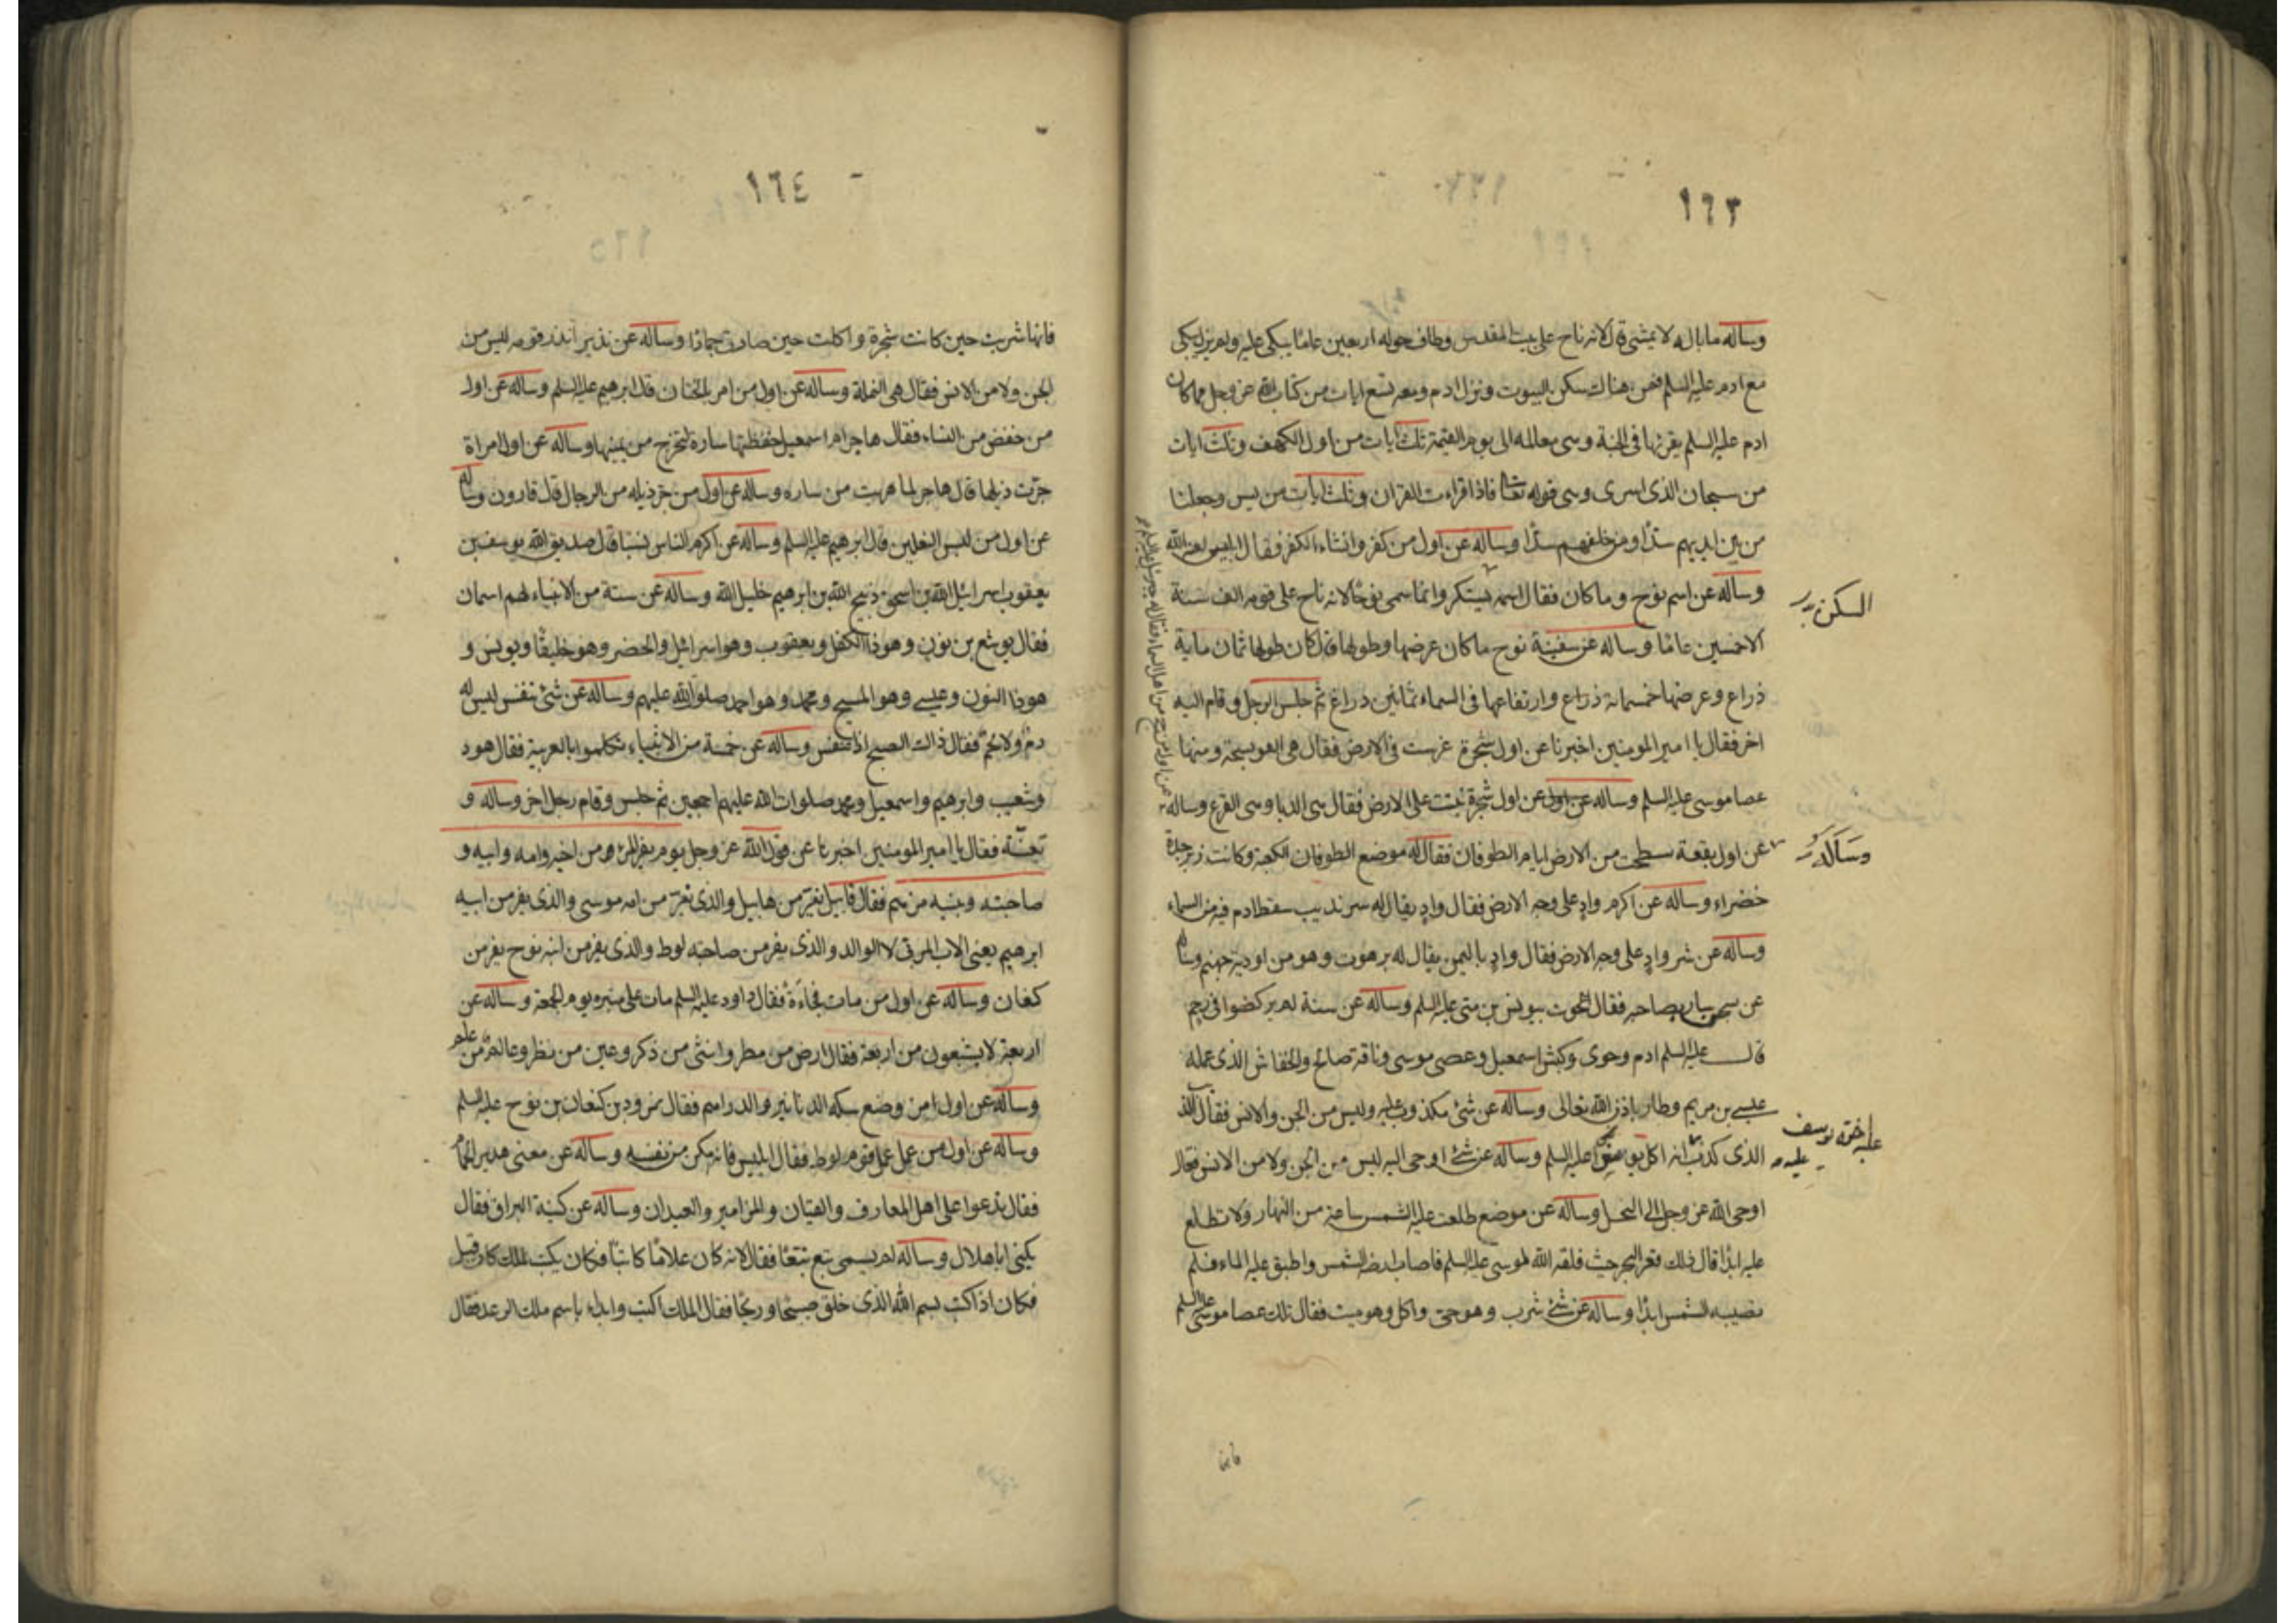 ١٦٣
وساله ما باله لا يمشى قال لانه ناح على بيت المقدس وطاف حوله اربعين عامًا يبكى عليه ولم يزل يبكى
مع ادم عليه السلم فمن هناك سكن البيوت ونزل ادم ومعه تسع ايات من كتاب الله عز وجل مما كان
ادم عليه السلم يقرئها فى الجنة وهى معه الى يوم القيمة ثلث ايات من اول الكهف وثلث ايات
من سبحان الذى اسرى وهى قوله تعالى فاذا قرات القران وثلث ايات من يس وجعلنا
من بين ايديهم سدًا ومن خلفهم سدًا وساله عن اول من كفر وانشاء الكفر فقال ابليس لعنه الله
وساله عن اسم نوح وما كان فقال اسمه يستكر وانما سمى نوحًا لانه ناح على قومه الف سنة
السكن
الا خمسين عامًا وساله عن سفينة نوح ما كان عرضها وطولها قال كان طولها ثمان ماية
ذراع وعرضها خمسماية ذراع وارتفاعها فى السماء ثمانين ذراع ثم جلس الرجل وقام اليه
اخر فقال يا امير المومنين اخبرنا عن اول شجرة غرست فى الارض فقال هى العوسجة ومنها
عصا موسى عليه السلم وساله عن اول عن اول شجرة نبتت على الارض فقال هى الدبا وهى القرع وساله
عن اول بقعة سطحت من الارض ايام الطوفان فقال له موضع الطوفان الكعبة وكانت زبرجدة
وساله
خضراء وساله عن اكرم وادٍ على وجه الارض فقال وادٍ يقال له سرنديب سقط ادم فيه من السماء
وساله عن شر وادٍ على وجه الارض فقال وادٍ باليمن يقال له برهوت وهو من اودية جهنم وساله
عن سجن سار بصاحبه فقال الحوت بيونس بن متى عليه السلم وساله عن ستة لم يركضوا فى رحم
قال عليه السلم ادم وحوى وكبش اسمعيل وعصى موسى وناقة صالح والخفاش الذى عمله
عيسى بن مريم وطار باذن الله تعالى وساله عن شئ مكذوب عليه وليس من الجن والانس فقال الذئب
الذى كذب انه اكل يوسف عليه السلم وساله عن شئ اوحى اليه ليس من الجن ولا من الانس فقال
عليه اخوة يوسف
عليه
اوحى الله عز وجل الى النحل وساله عن موضع طلعت عليه الشمس ساعة من النهار ولا تطلع
عليه ابدًا قال ذلك قعر البحر حيث فلقه الله لموسى عليه السلم فاصاب ارضه الشمس واطبق عليه الماء فلم
تصيبه الشمس ابدًا وساله عن شئ شرب وهو حى واكل وهو ميت فقال تلك عصا موسى عليه السلم
فانها
١٦٤
فانها شربت حين كانت شجرة واكلت حين صارت جمادًا وساله عن نذير انذر قومه ليس من
الجن ولا من الانس فقال هى النملة وساله عن اول من امر بالختان قال ابرهيم عليه السلم وساله عن اول
من خفض من النساء فقال هاجر ام اسمعيل خفظتها سارة لتخرج من يمينها وساله عن اول امراة
جرّت ذيلها قال هاجر لما هربت من ساره وساله عن اول من جر ذيله من الرجال قال قارون وساله
عن اول من لبس النعلين قال ابرهيم عليه السلم وساله عن اكرم الناس نسبًا قال صديق الله يوسف بن
يعقوب اسرائيل الله بن اسحق ذبيح الله بن ابرهيم خليل الله وساله عن ستة من الانبياء لهم اسمان
فقال يوشع بن نون وهو ذا الكفل ويعقوب وهو اسرائيل والخضر وهو خليقًا ويونس و
هو ذا النون وعيسى وهو المسيح ومحمد وهو احمد صلوات الله عليهم وساله عن شئ تنفس ليس له
دم ولا لحم فقال ذاك الصبح اذا تنفس وساله عن خمسة من الانبياء تكلموا بالعربية فقال هود
وشعيب وابرهيم واسمعيل ومحمد صلوات الله عليهم اجمعين ثم جلس وقام رجل اخر وساله و
تعنّته فقال يا امير المومنين اخبرنا عن قول الله عز وجل يوم يفر المرء من اخيه وامه وابيه و
صاحبته وبنيه من هم فقال قابيل يفر من هابيل والذى يفر من امه موسى والذى يفر من ابيه
ابرهيم يعنى الاب المربى لا الوالد والذى يفر من صاحبته لوط والذى يفر من ابنه نوح يفر من
كنعان وساله عن اول من مات فجاءة فقال داود عليه السلم مات على منبره يوم الجمعة وساله عن
اربعة لا يشبعون من اربعة فقال ارض من مطر وانثى من ذكر وعين من نظر وعالم من علم
وساله عن اول من وضع سكه الدنانير والدراهم فقال نمرود بن كنعان بن نوح عليه السلم
وساله عن اول من عمل عمل قوم لوط فقال ابليس فانه مكن من نفسه وساله عن معنى هدير الحمام
فقال تدعوا على اهل المعارف والقيان والمزامير والعيدان وساله عن كنية البراق فقال
يكنى ابا هلال وساله لم يسمى تبع تبعًا فقال لانه كان غلامًا كاتبًا فكان يكتب لملك كان قبل
فكان اذا كتب بسم الله الذى خلق صبحًا وريحًا فقال الملك اكتب وابداء باسم ملك الرعد فقال